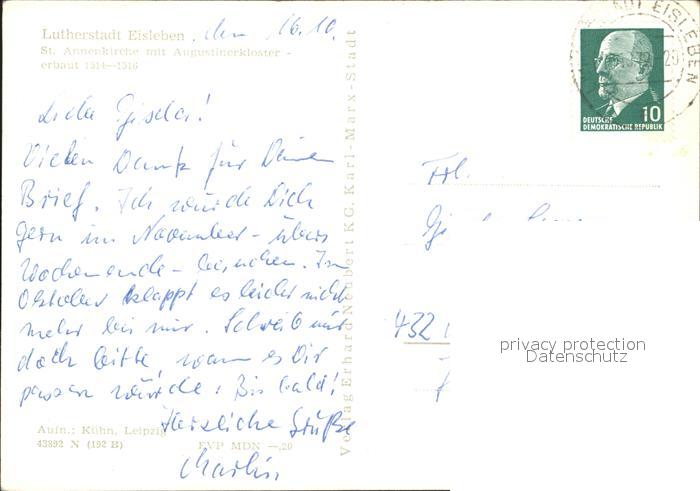 Lutherstadt Eisleben, den 16.10.
St. Annenkirche mit Augustinerkloster -
erbaut 1514—1516
Liebe Gisela!
Vielen Dank für Deinen
Brief. Ich würde Dich
gern im November - übers
Wochenende - besuchen. Im
Oktober klappt es leider nicht
mehr bei mir. Schreib mir
doch bitte, wann es Dir
passen würde. Bis bald!
Herzliche Grüße
Aufn.: Kühn, Leipzig
43892 N (192 B) EVP MDN —,20
Verlag Erhard Neubert KG. Karl-Marx-Stadt
EISLEBEN
10
DEUTSCHE
DEMOKRATISCHE REPUBLIK
Frl.
432
privacy protection
Datenschutz